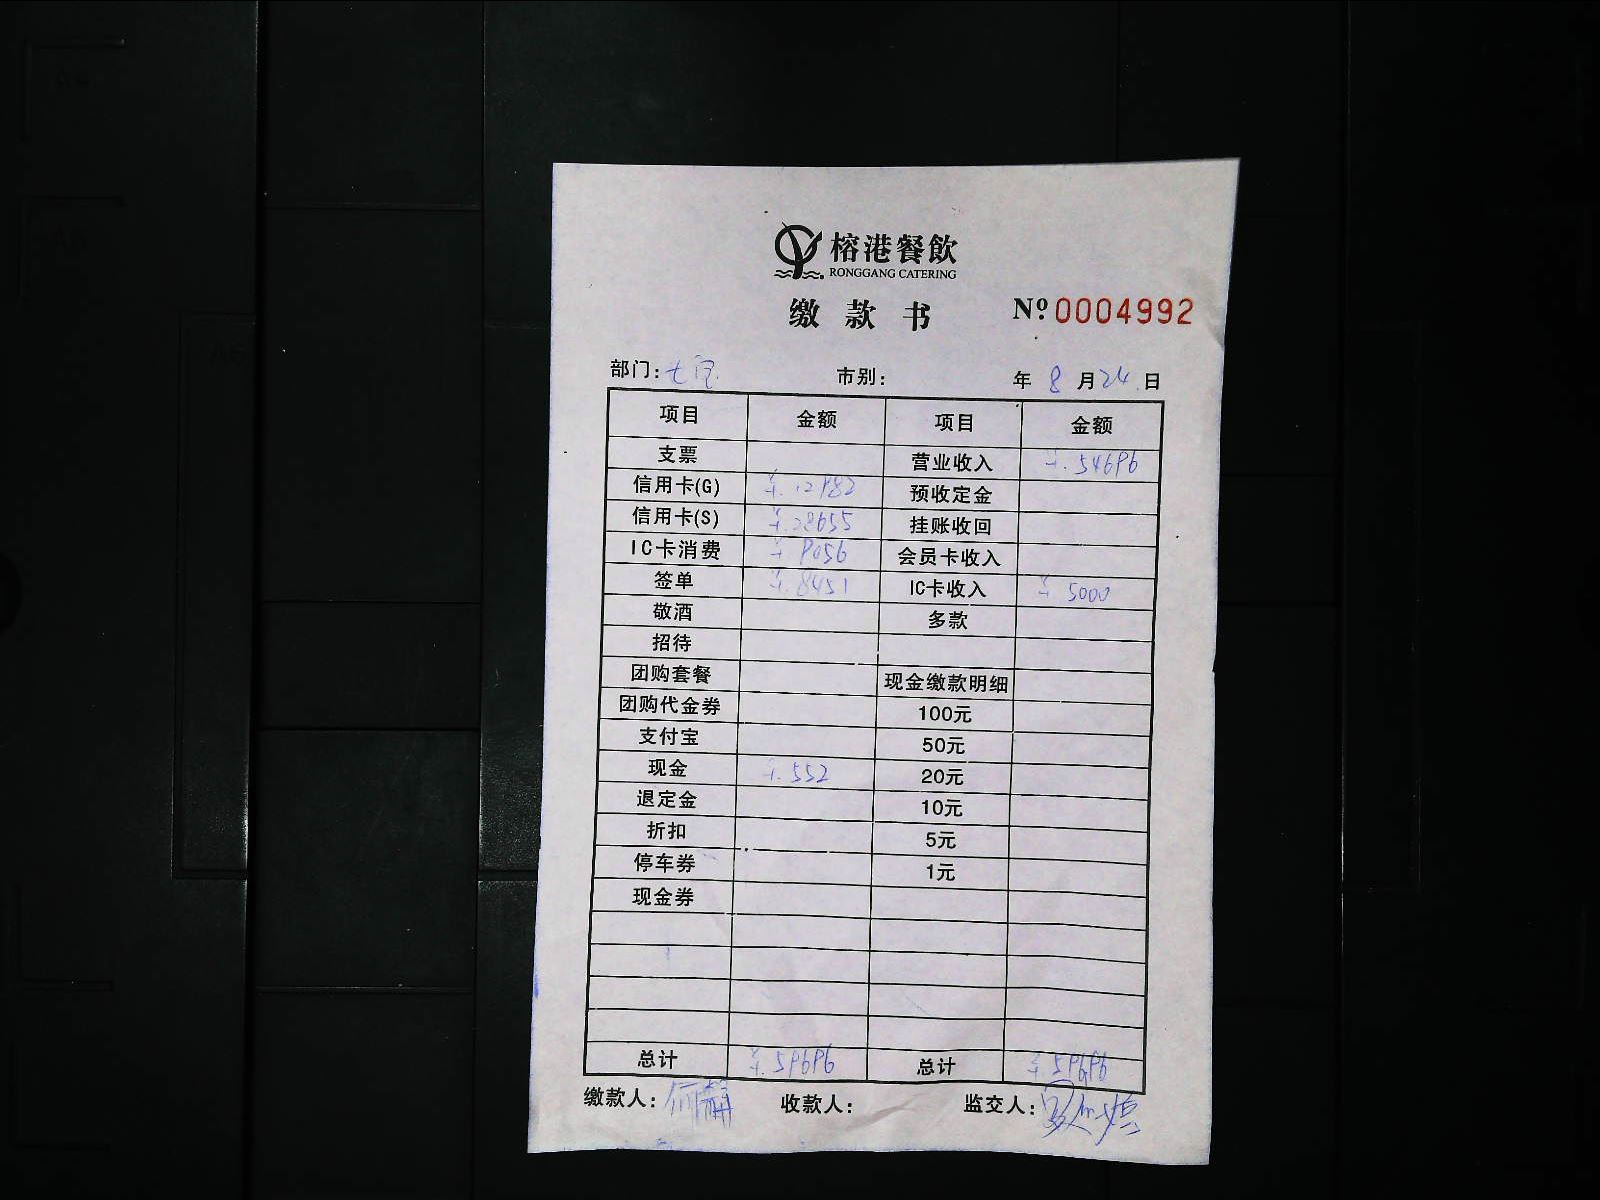 榕港餐飲
RONGGANG CATERING
缴款书 Nº 0004992
部门: 七宝 市别: 年 8 月 24 日
项目 金额 项目 金额
支票 营业收入 ¥.54696
信用卡(G) ¥.12982 预收定金
信用卡(S) ¥.28655 挂账收回
IC卡消费 ¥ 9056 会员卡收入
签单 ¥.8451 IC卡收入 ¥ 5000
敬酒 多款
招待
团购套餐 现金缴款明细
团购代金券 100元
支付宝 50元
现金 ¥.552 20元
退定金 10元
折扣 5元
停车券 1元
现金券
总计 ¥.59696 总计 ¥.59696
缴款人: 收款人: 监交人: